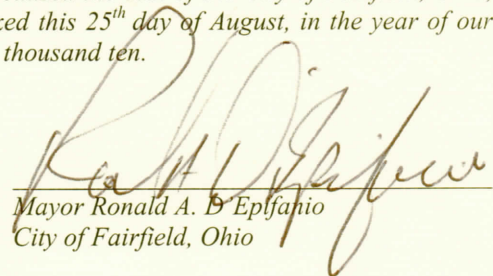 ked this 25th day of August, in the year of our
thousand ten.
Mayor Ronald A. D Epifanio
City of Fairfield, Ohio